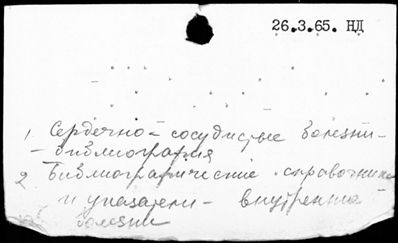 26.3.65. НД
1 Сердечно-сосудистые болезни-
- библиография
2 Библиографические справочники
и указатели - внутренние
болезни